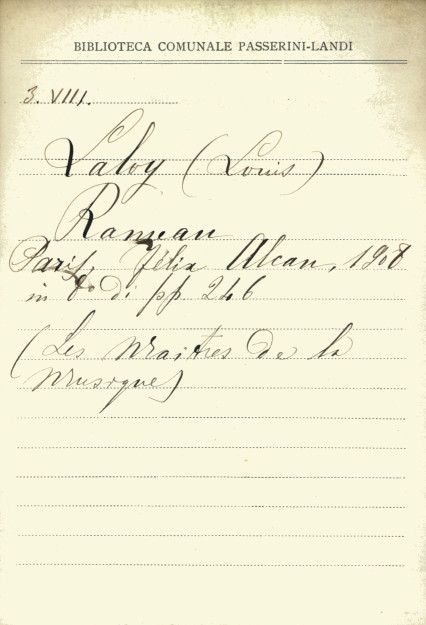 BIBLIOTECA COMUNALE PASSERINI-LANDI
3. VIII.
Laloy (Louis)
Rameau
Paris, Félix Alcan, 1908
in 8º di pp 246
(Les Maitres de la
Musique)